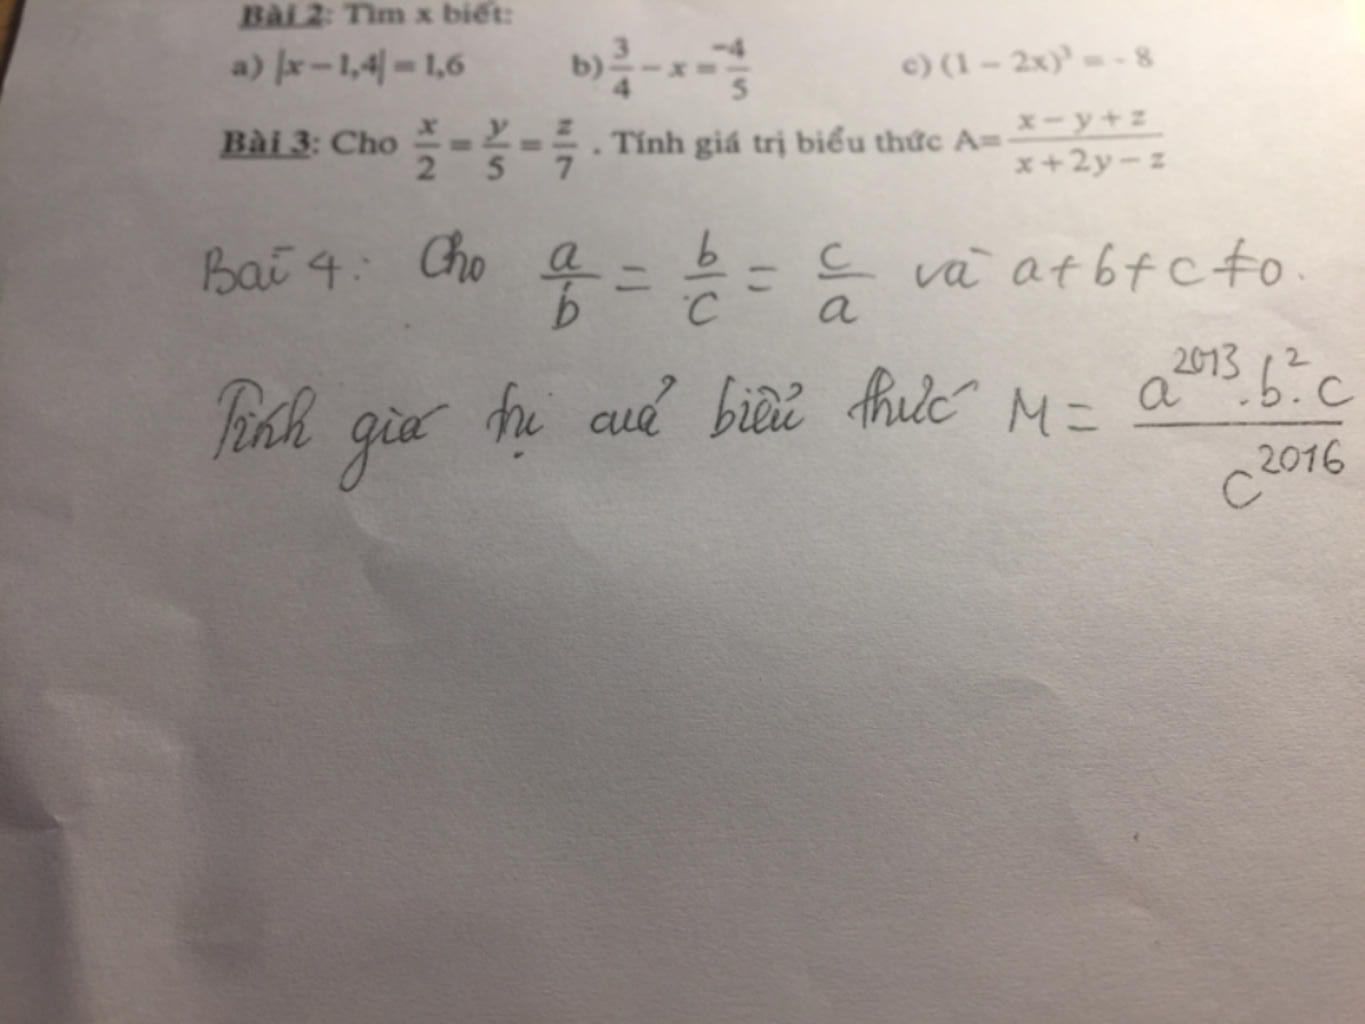 Bài 2: Tìm x biết:
a) |x – 1,4| = 1,6 b) 3/4 – x = –4/5 c) (1 – 2x)³ = - 8
Bài 3: Cho x/2 = y/5 = z/7 . Tính giá trị biểu thức A= (x – y + z)/(x + 2y – z)
Bài 4: Cho a/b = b/c = c/a và a + b + c ≠ 0.
Tính giá trị cuả biểu thức M = (a²⁰¹³.b².c)/(c²⁰¹⁶)